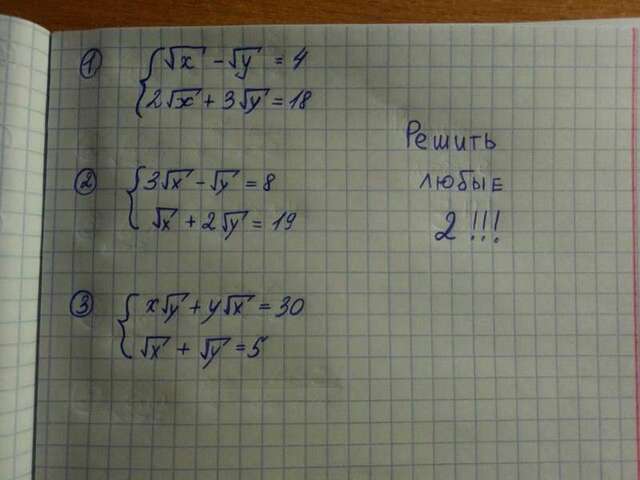 ① { √x - √y = 4
2√x + 3√y = 18
Решить
любые
2 !!!
② { 3√x - √y = 8
√x + 2√y = 19
③ { x√y + y√x = 30
√x + √y = 5